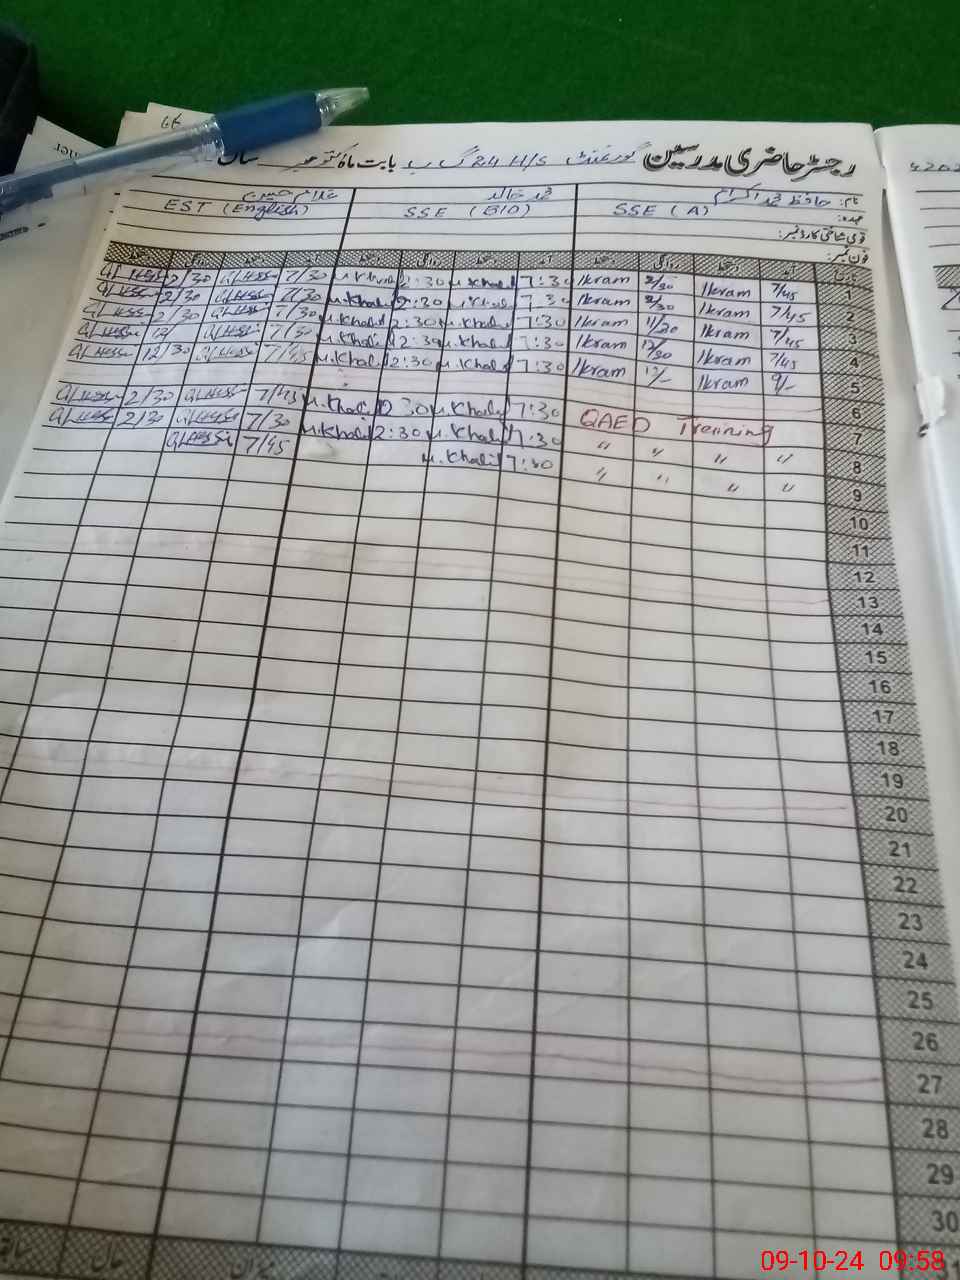 رجسٹر حاضری مدرسین گورنمنٹ H/S 24 گ ب بابت ماہ اکتوبر سال
نام: حافظ محمد اکرام محمد خالد غلام حسین
عہدہ: SSE (A) SSE (BIO) EST (English)
قومی شناختی کارڈ نمبر:
فون نمبر:
1 7/45 Ikram 2/30 Ikram 7:30 M.Khalid 2:30 M.Khalid 7/30 2/30
2 7/45 Ikram 2/30 Ikram 7:30 M.Khalid 2:30 M.Khalid 7/30 2/30
3 7/45 Ikram 11/30 Ikram 7:30 M.Khalid 2:30 M.Khalid 7/30 2/30
4 7/45 Ikram 12/30 Ikram 7:30 M.Khalid 2:30 M.Khalid 7/30 12/
5 9/- Ikram 12/- Ikram 7:30 M.Khalid 2:30 M.Khalid 7/45 12/30
6
7 QAED Training 7:30 M.Khalid 2:30 M.Khalid 7/45 2/30
8 〃 〃 〃 〃 7:30 M.Khalid 2:30 M.Khalid 7/30 2/30
9 〃 〃 〃 〃 7:30 M.Khalid 7/45
10
11
12
13
14
15
16
17
18
19
20
21
22
23
24
25
26
27
28
29
30
09-10-24 09:58